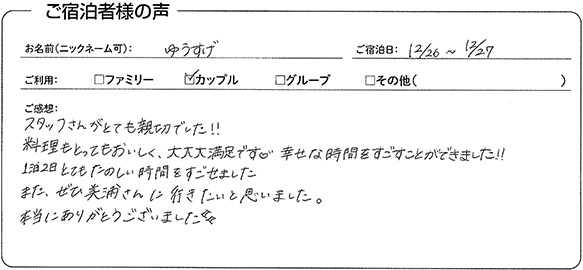 ご宿泊者様の声
お名前(ニックネーム可): ゆうすげ ご宿泊日: 12/26 ~ 12/27
ご利用: □ファミリー ☑カップル □グループ □その他( )
ご感想:
スタッフさんがとても親切でした!!
料理もとってもおいしく、大大大満足です♡ 幸せな時間をすごすことができました!!
1泊2日とてもたのしい時間をすごせました
また、ぜひ美浦さんに行きたいと思いました。
本当にありがとうございました☆